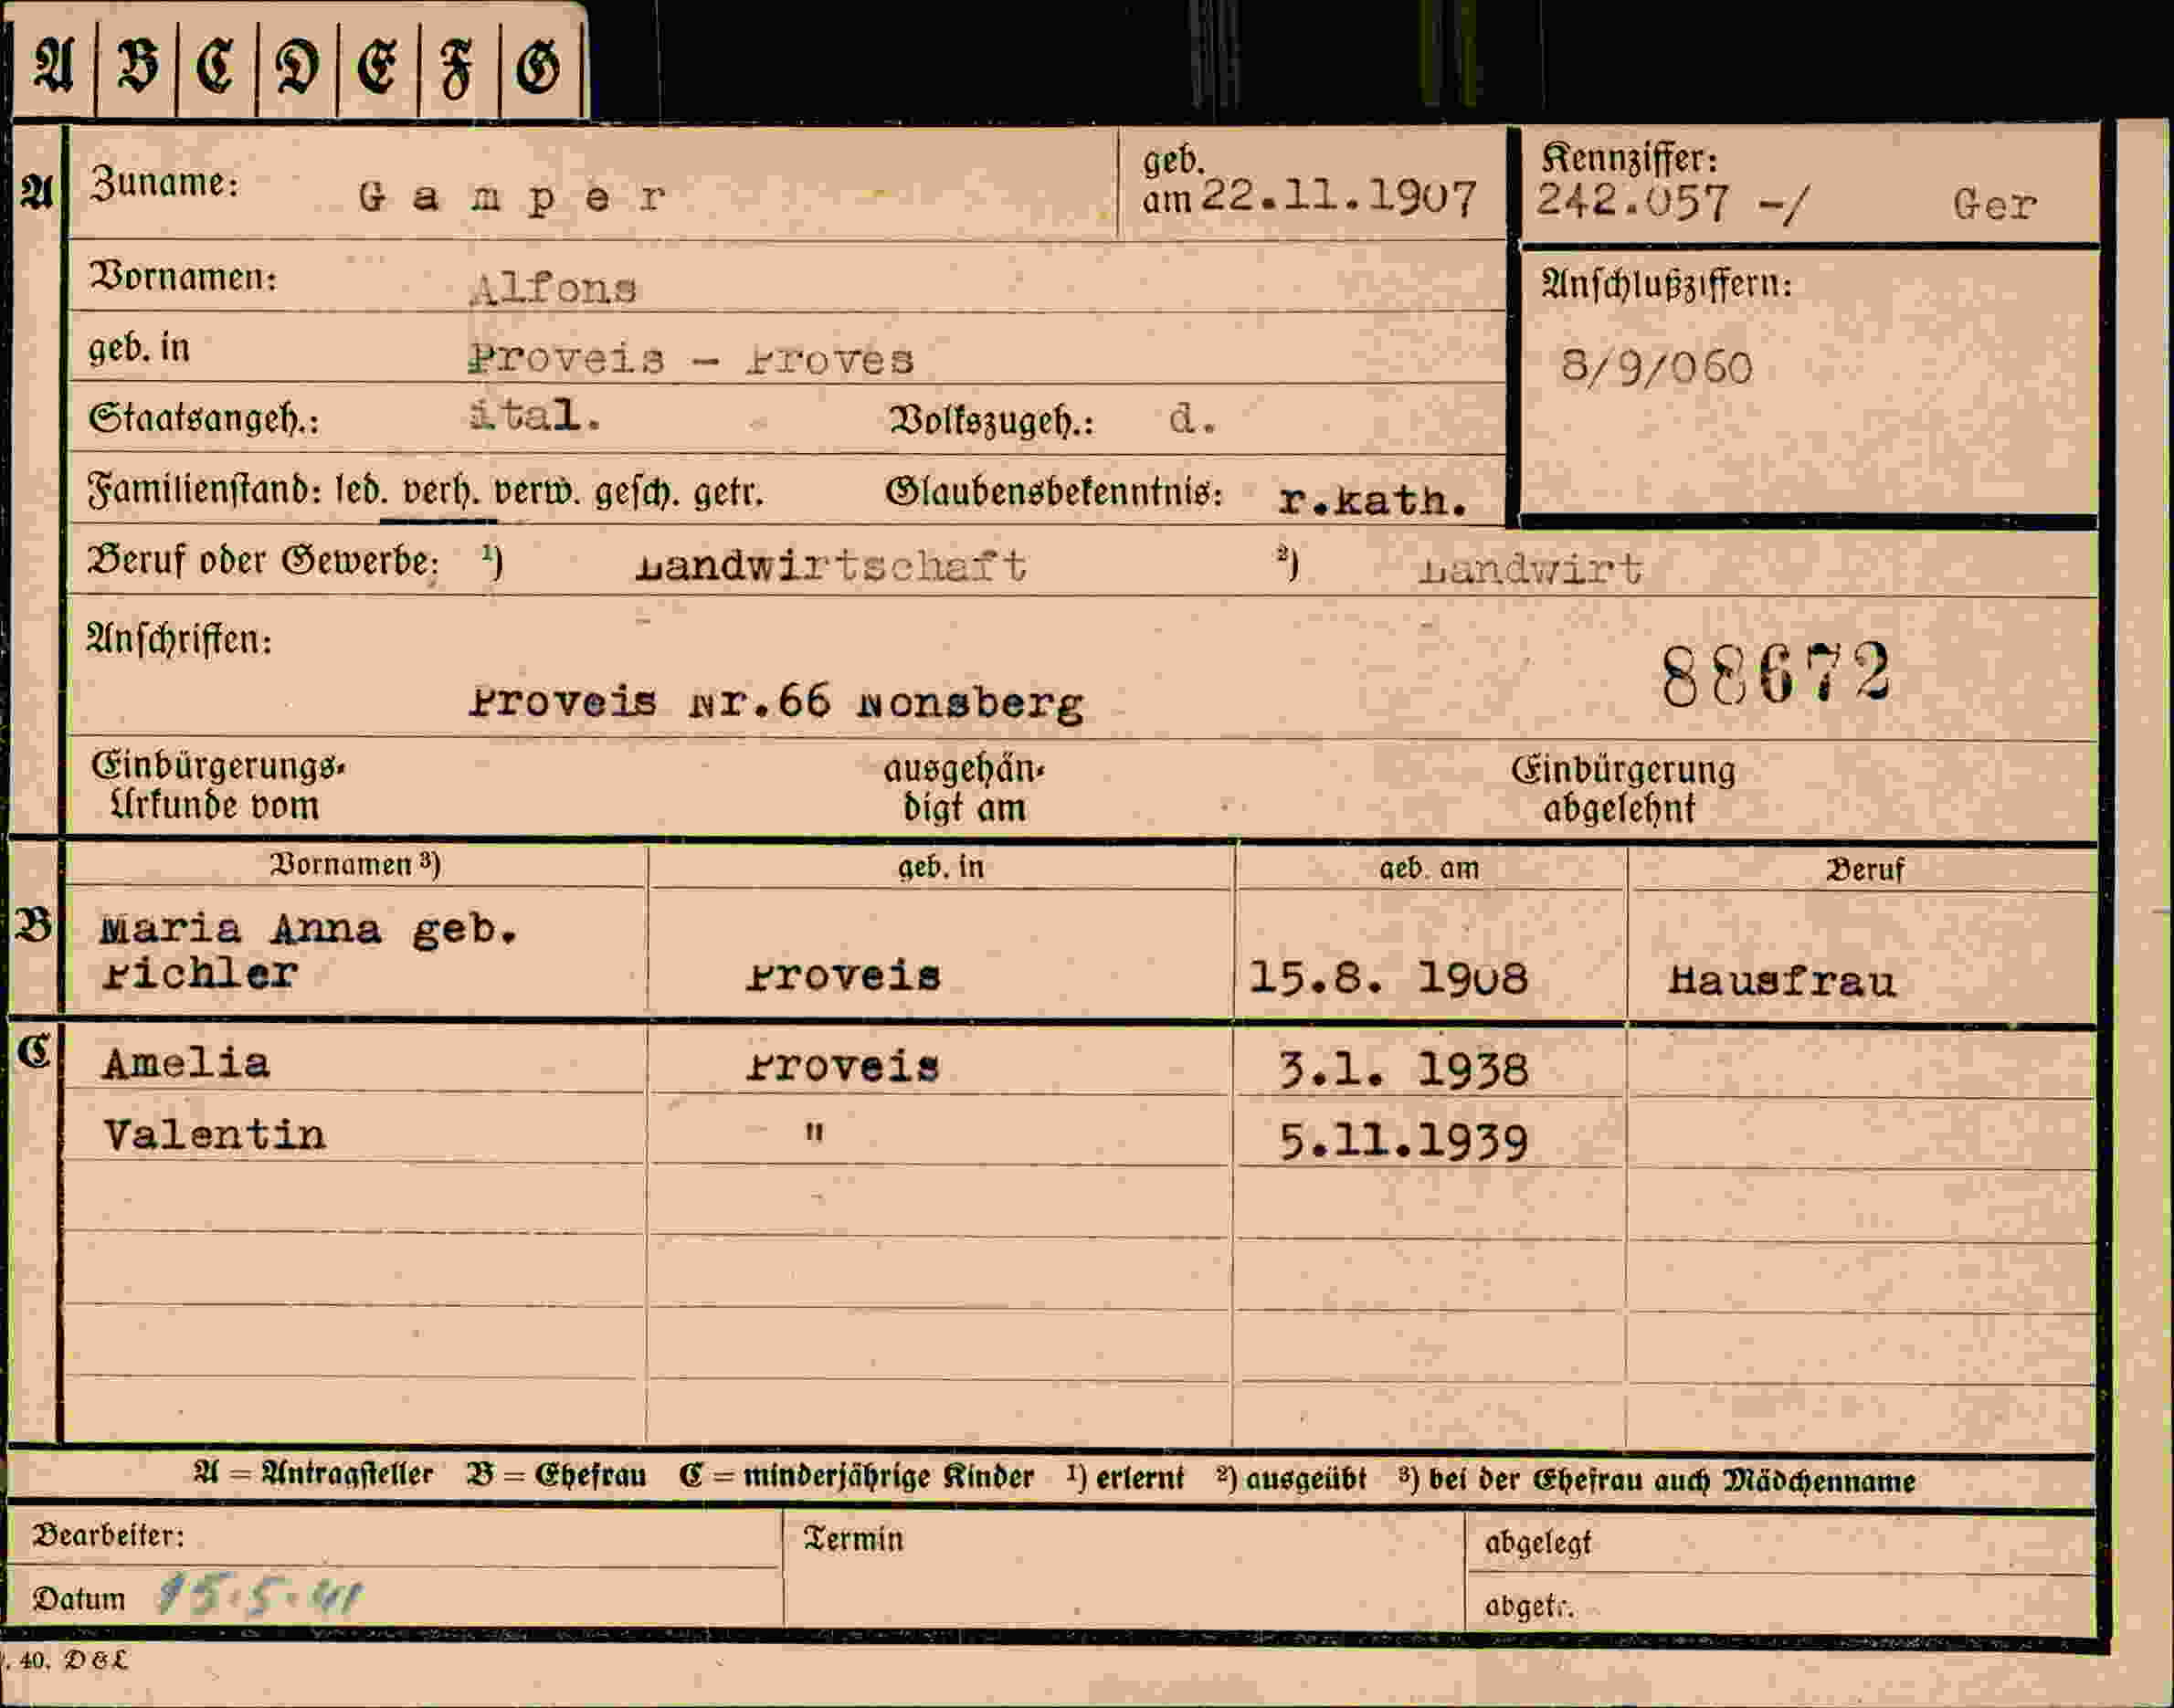 A B C D E F G
A Zuname: Gamper geb. am 22.11.1907 Kennziffer: 242.057 -/ Ger
Vornamen: Alfons Anschlußziffern:
geb. in Proveis - Proves 8/9/060
Staatsangeh.: ital. Volkszugeh.: d.
Familienstand: led. verh. verw. gesch. getr. Glaubensbekenntnis: r.kath.
Beruf oder Gewerbe: ¹) Landwirtschaft ²) Landwirt
Anschriften: 88672
Proveis Nr.66 Nonsberg
Einbürgerungs- ausgehän- Einbürgerung
Urkunde vom digt am abgelehnt
Vornamen ³) geb. in geb. am Beruf
B Maria Anna geb.
Pichler Proveis 15.8. 1908 Hausfrau
C Amelia Proveis 3.1. 1938
Valentin " 5.11.1939
A = Antragsteller B = Ehefrau C = minderjährige Kinder ¹) erlernt ²) ausgeübt ³) bei der Ehefrau auch Mädchenname
Bearbeiter: Termin abgelegt
Datum 15.5.41 abgetr.
. 40. D & L